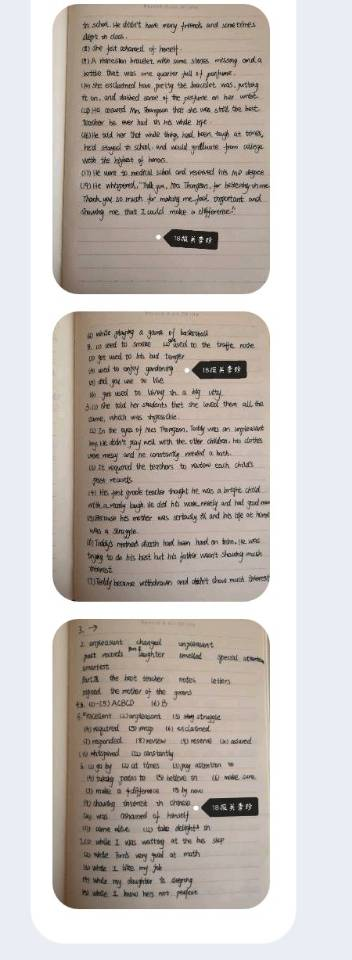 to school. He didn't have many friends and sometimes
slept in class.
(8) She felt ashamed of herself.
(9) A rhinestone bracelet with some stones missing and a
bottle that was one quarter full of perfume.
(10) She exclaimed how pretty the bracelet was, putting
it on, and dabbed some of the perfume on her wrist.
Mrs Thompson that she was still the best
teacher he ever had in his whole life.
He told her that while things had been tough at times,
he'd stayed in school, and would graduate from college
with the highest of honors.
He went to medical school and received his MD degree
He whispered, "Thank you, Mrs Thompson, for believing in me
Thank you so much for making me feel important and
showing me that I could make a difference."
18报关李珍
while playing a game of basketball
used to smoke used to the traffic noise
got used to his bad temper
used to enjoy gardening
18报关李珍
did you use to live
got used to living in a big city
3.(1) She told her students that she loved them all the
same, which was impossible.
(2) In the eyes of Mrs Thompson, Teddy was an unpleasant
boy. He didn't play well with the other children, his clothes
were messy and he constantly needed a bath.
(3) It required the teachers to review each child's
past records.
(4) His first grade teacher thought he was a bright child
with a ready laugh. He did his work neatly and had good
his mother was seriously ill and his life at home
was a struggle.
(6) Teddy's mother's death had been hard on him. He was
trying to do his best but his father wasn't showing much
interest.
(7) Teddy became withdrawn and didn't show much interest
3. →
2. unpleasant changed unpleasant
past records laughter unveiled special attention
smartest
the best teacher notes letters
signed the mother of the groom
(1)-(5) ACBCD (6) B
excellent (2) unpleasant (3) struggle
(4) required (5) messy (6) exclaimed
(7) responded (8) review (9) reserve assured
whispered constantly
6. (1) go by (2) at times (3) pay attention to
(4) taking pains to (5) believe in (6) make sure
make a difference by now
showing interest in chinese
18报关李珍
was ashamed of himself
came alive take delight in
while I was waiting at the bus stop
While Tom's very good at math
While I like my job
While my daughter is sleeping
While I know he's not perfect